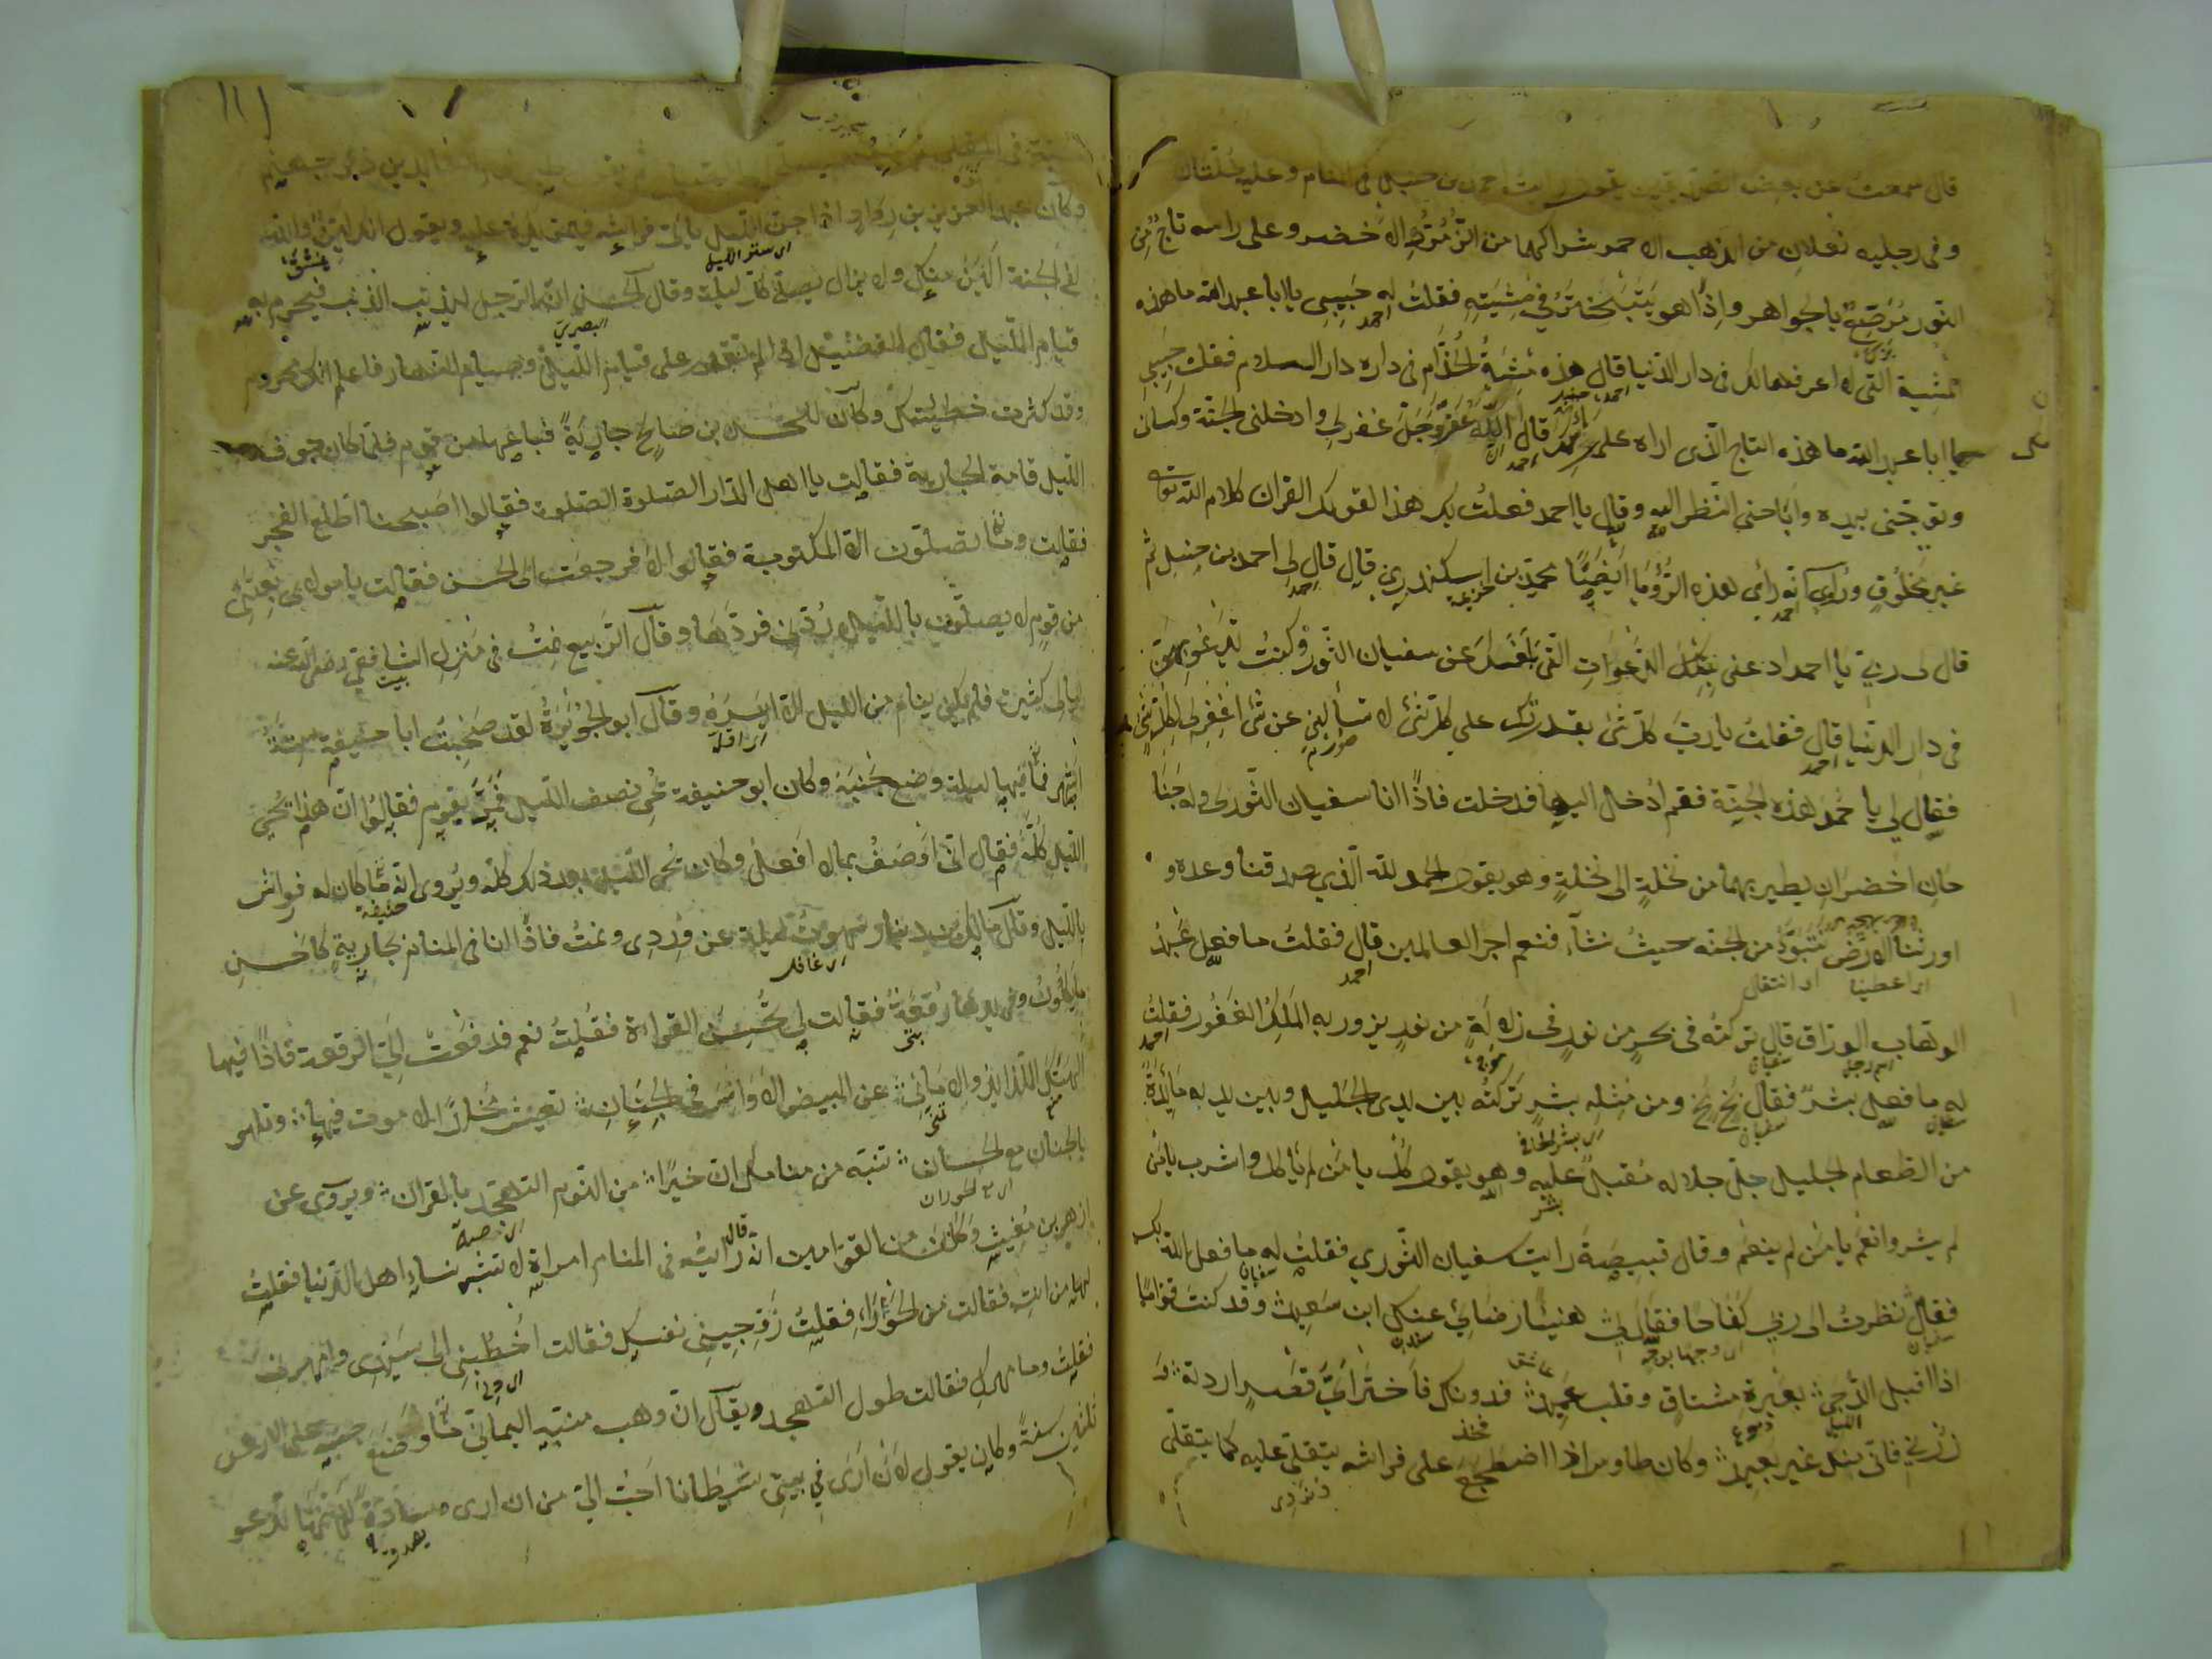 قال سمعت عن بعض يقول رايت احمد بن حنبل في المنام وعليه حلتان
وفي رجليه نعلان من الذهب الاحمر شراكهما من الزمرد الاخضر وعلى راسه تاج من
النور مرصع بالجواهر واذا هو يتبختر في مشيته فقلت له حبيبي يا ابا عبد الله ما هذه
المشية التي لا اعرفها لك في دار الدنيا قال هذه مشية الخدام في داره دار السلام فقلت حبيبي
يا ابا عبد الله ما هذه التاج الذي اراه على قال ان الله عز وجل غفر لي وادخلني الجنة وكساني
وتوجني بيده واباحني النظر اليه وقال يا احمد فعلت بك هذا لقولك القران كلام الله
غير مخلوق وراى هذه الرؤيا ايضا محمد بن اسكندري قال قال لي احمد بن حنبل ثم
قال لي ربي يا احمد ادعني بتلك الدعوات التي عن سفيان الثوري وكنت تدعو بهن
في دار الدنيا قال فقلت يا رب كل شئ بقدرتك على كل شئ لا تسالني عن شئ اغفر لي كل شئ
فقال لي يا احمد هذه الجنة فقم ادخل اليها فدخلت فاذا انا سفيان الثوري وله جنا
حان اخضران يطير بهما من نخلة الى نخلة وهو يقول الحمد لله الذي صدقنا وعده و
اورثنا الارض نتبوأ من الجنة حيث نشاء فنعم اجر العاملين قال فقلت ما فعل عبد
اى اعطينا
الوهاب الوراق قال تركته في بحر من نور في زلالة من نور يزور به الملك الغفور فقلت
له ما فعل بشر فقال بخ بخ ومن مثله بشر تركته بين يدي الجليل وبين يديه مايدة
من الطعام الجليل جل جلاله مقبل عليه وهو يقول كل يا من لم ياكل واشرب يا من
لم يشرب وانعم يا من لم ينعم وقال قبيصة رايت سفيان الثوري فقلت له ما فعل الله بك
فقال نظرت الى ربي كفاحا فقال لي هنيئا رضائي عنك ابن سعيد وقد كنت قواما
اذا اقبل الدجى بعبرة مشتاق وقلب عميد فدونك فاختر اي قصر اردته و
زرني فاني منك غير بعيد وكان طاوس اذا اضطجع على فراشه يتقلى عليه كما يتقلى
وكان عبد العزيز بن رواد اذا جن الليل ياتي فراشه فيمر يده عليه ويقول انك لين والله
اى ستر الليل
في الجنة الين منك ولا يزال يصلي كل ليلة وقال الحسن ان الرجل ليذنب الذنب فيحرم به
البصري
قيام الليل فقال الفضيل اذا لم تقدر على قيام الليل وصيام النهار فاعلم انك محروم
وقد كثرت خطيئتك وكان للحسن بن صالح جارية فباعها من قوم فلما كان جوف
الليل قامة الجارية فقالت يا اهل الدار الصلوة الصلوة فقالوا اصبحنا اطلع الفجر
فقالت وما تصلون الا المكتوبة فقالوا لا فرجعت الى الحسن فقالت يا مولاي بعتني
من قوم لا يصلون بالليل ردني فردها وقال الربيع نمت في منزل الشافعي رضي الله عنه
ليالي كثيرة فلم يكن ينام من الليل الا ايسره وقال ابو الجويرة لقد صحبت ابا حنيفة ستة
اى اقله
اشهر فما فيها ليلة وضع جنبه وكان ابو حنيفة يحي نصف الليل فمر بقوم فقالوا ان هذا يحي
الليل كله فقال اني اوصف بما لا افعل وكان يحي الليل بعد ذلك كله ويروى انه ما كان له فراش
بالليل وقال مالك بن دينار سهوت ليلة عن وردي ونمت فاذا انا في المنام بجارية كاحسن
اى غافل
ما يكون وفي يدها رقعة فقالت لي تحسن القراءة فقلت نعم فدفعت الي الرقعة فاذا فيها
الهتك اللذايذ والاماني عن البيض الاوانس في الجنان تعيش مخلدا لا موت فيها وتلهو
بالجنان مع الحسان تنبه من منامك ان خيرا من النوم التهجد بالقران ويروى عن
ازهر بن مغيث وكان من القوامين انه قال رايت في المنام امراة لا تشبه نساء اهل الدنيا فقلت
لها من انت فقالت من الحوراء فقلت زوجيني نفسك فقالت اخطبني الى سيدي وامهرني
فقلت وما مهرك فقالت طول التهجد ويقال ان وهب منبه اليماني ما وضع جنبه على الارض
ثلثين سنة وكان يقول لان ارى في بيتي شيطانا احب الي من ان ارى وسادة لانها تدعو